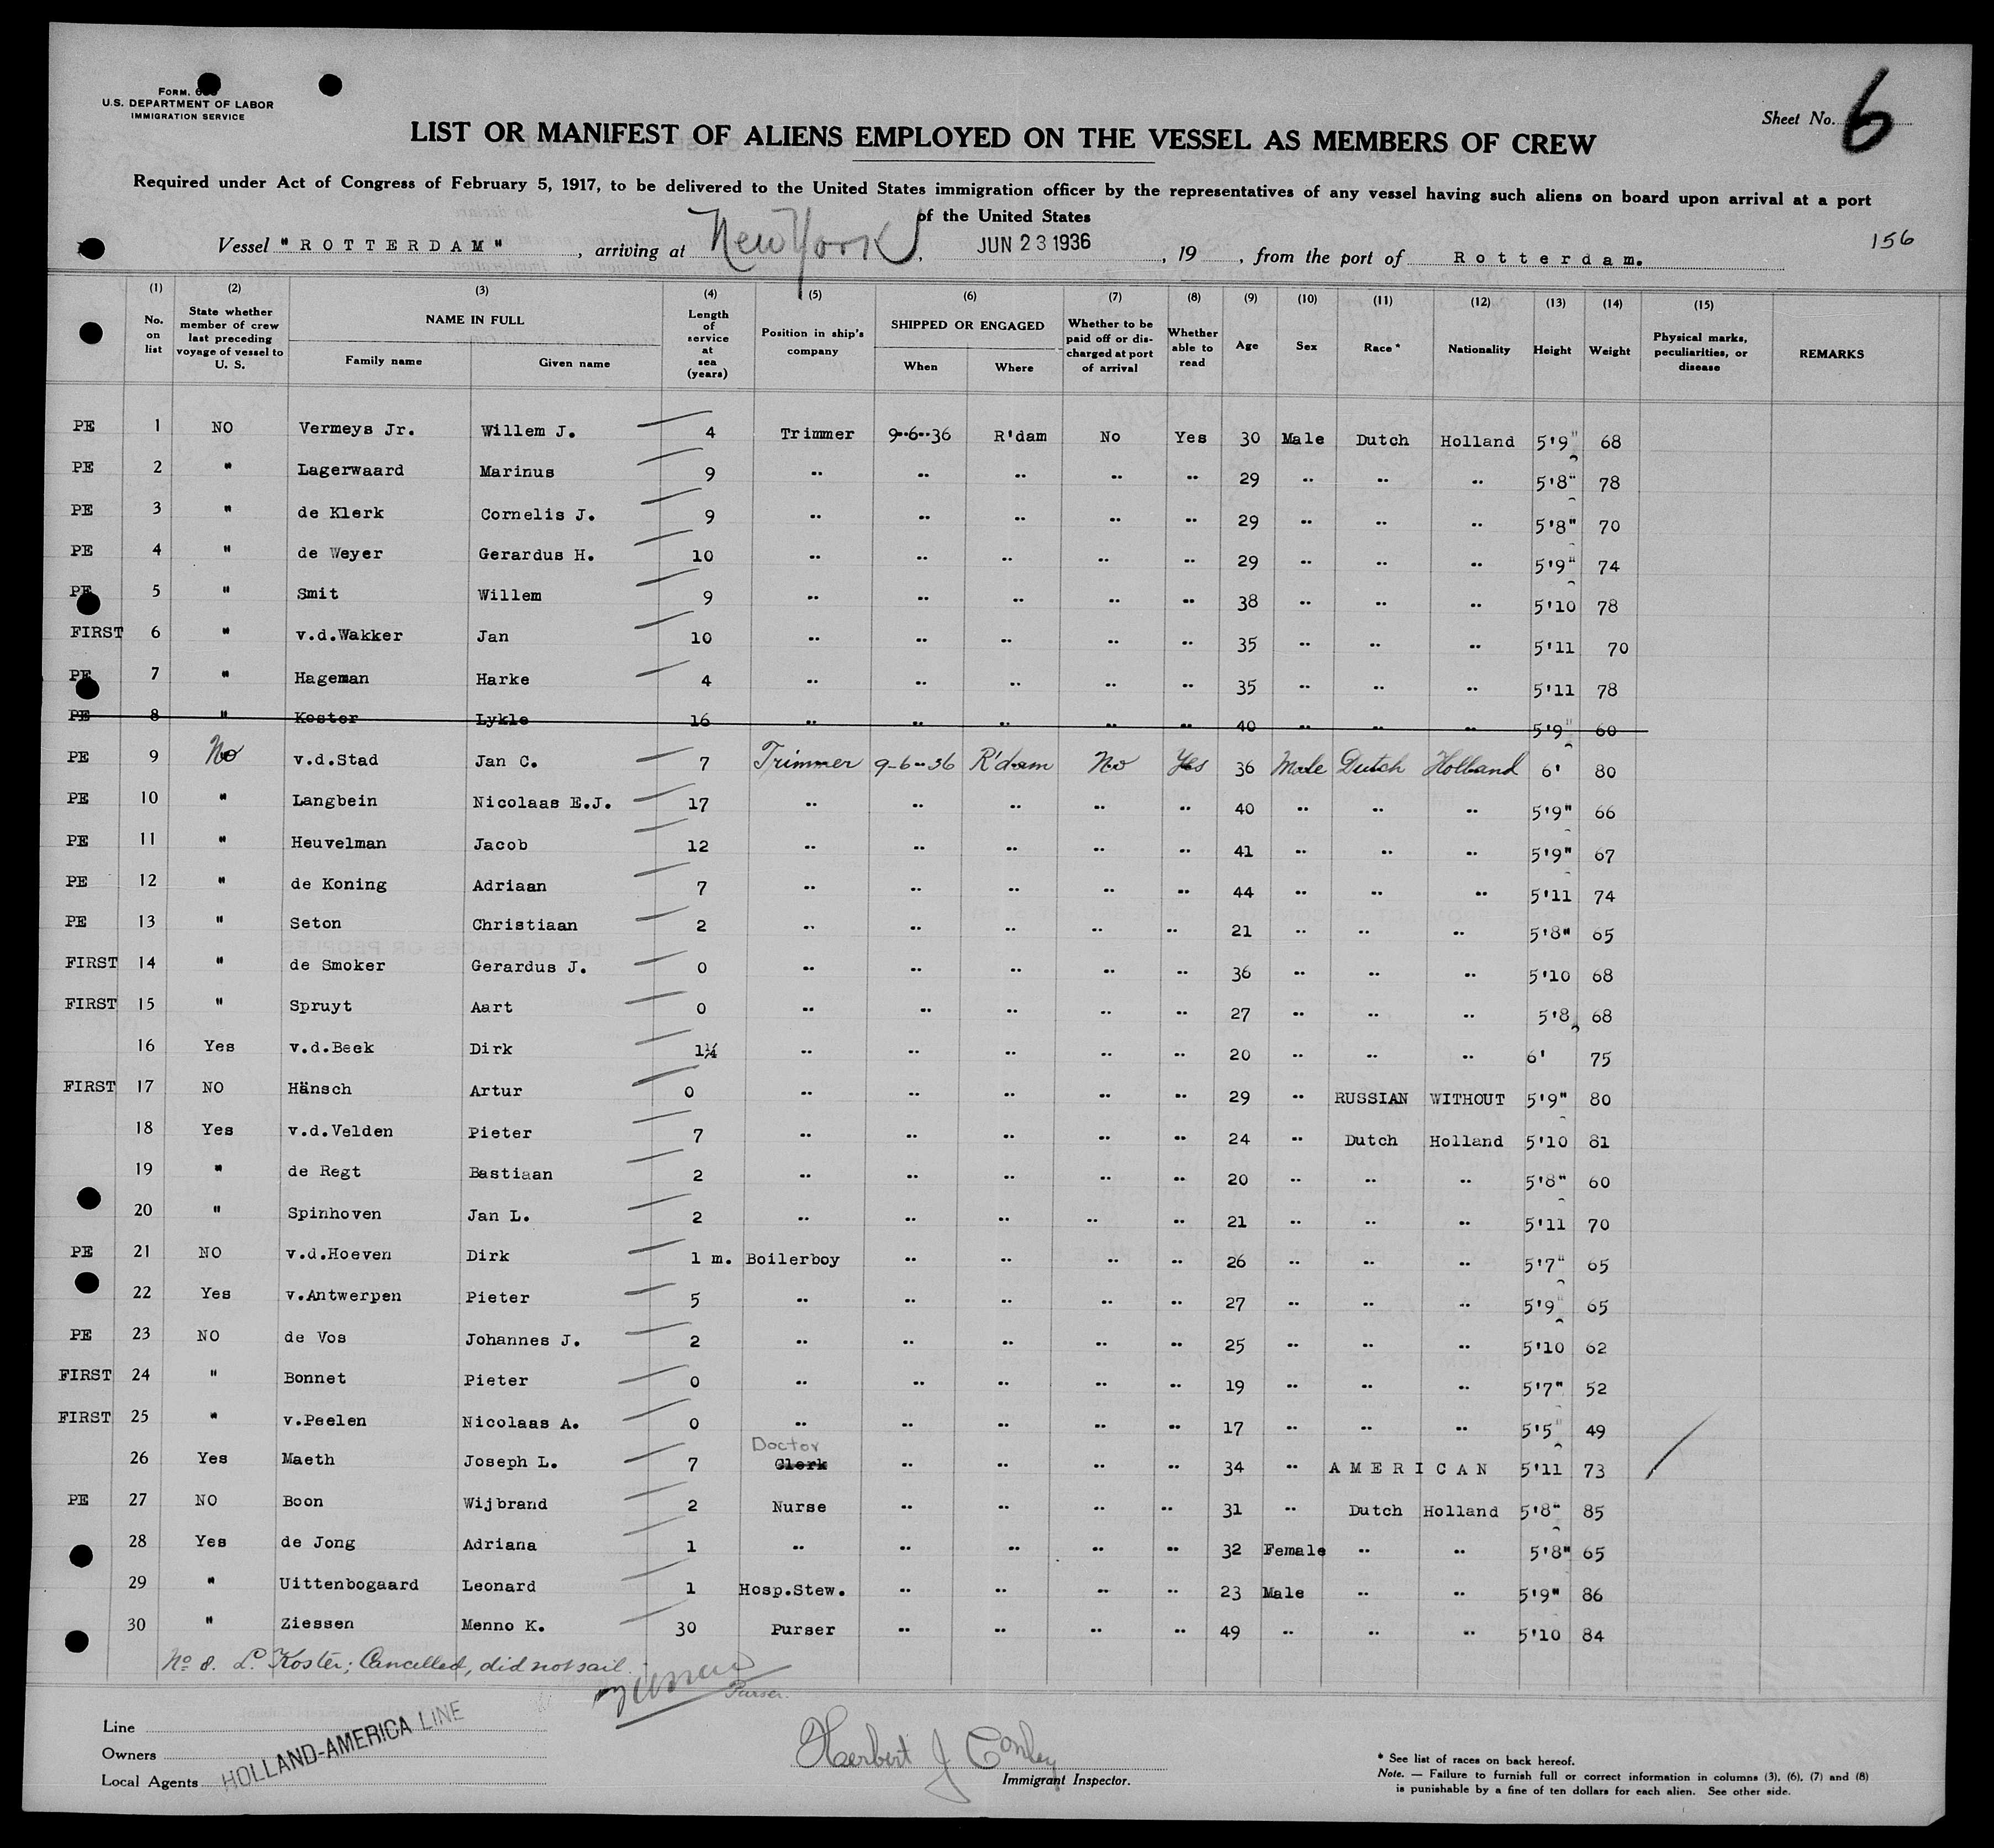 FORM. 6
U.S. DEPARTMENT OF LABOR
IMMIGRATION SERVICE
Sheet No. 6
LIST OR MANIFEST OF ALIENS EMPLOYED ON THE VESSEL AS MEMBERS OF CREW
Required under Act of Congress of February 5, 1917, to be delivered to the United States immigration officer by the representatives of any vessel having such aliens on board upon arrival at a port
of the United States
156
Vessel "ROTTERDAM", arriving at New York, JUN 23 1936, 19 , from the port of Rotterdam.
(1) (2) (3) (4) (5) (6) (7) (8) (9) (10) (11) (12) (13) (14) (15)
No. on list State whether member of crew last preceding voyage of vessel to U. S. NAME IN FULL Family name Given name Length of service at sea (years) Position in ship's company SHIPPED OR ENGAGED When Where Whether to be paid off or discharged at port of arrival Whether able to read Age Sex Race* Nationality Height Weight Physical marks, peculiarities, or disease REMARKS
PE 1 NO Vermeys Jr. Willem J. 4 Trimmer 9-6-36 R'dam No Yes 30 Male Dutch Holland 5'9" 68
PE 2 " Lagerwaard Marinus 9 " " " " " 29 " " " 5'8" 78
PE 3 " de Klerk Cornelis J. 9 " " " " " 29 " " " 5'8" 70
PE 4 " de Weyer Gerardus H. 10 " " " " " 29 " " " 5'9" 74
PE 5 " Smit Willem 9 " " " " " 38 " " " 5'10 78
FIRST 6 " v.d.Wakker Jan 10 " " " " " 35 " " " 5'11 70
PE 7 " Hageman Harke 4 " " " " " 35 " " " 5'11 78
PE 8 " Koster Lykle 16 " " " " " 40 " " " 5'9" 60
PE 9 No v.d.Stad Jan C. 7 Trimmer 9-6-36 R'dam No Yes 36 Male Dutch Holland 6' 80
PE 10 " Langbein Nicolaas E.J. 17 " " " " " 40 " " " 5'9" 66
PE 11 " Heuvelman Jacob 12 " " " " " 41 " " " 5'9" 67
PE 12 " de Koning Adriaan 7 " " " " " 44 " " " 5'11 74
PE 13 " Seton Christiaan 2 " " " " " 21 " " " 5'8" 65
FIRST 14 " de Smoker Gerardus J. 0 " " " " " 36 " " " 5'10 68
FIRST 15 " Spruyt Aart 0 " " " " " 27 " " " 5'8 68
16 Yes v.d.Beek Dirk 1¼ " " " " " 20 " " " 6' 75
FIRST 17 NO Hänsch Artur 0 " " " " " 29 " RUSSIAN WITHOUT 5'9" 80
18 Yes v.d.Velden Pieter 7 " " " " " 24 " Dutch Holland 5'10 81
19 " de Regt Bastiaan 2 " " " " " 20 " " " 5'8" 60
20 " Spinhoven Jan L. 2 " " " " " 21 " " " 5'11 70
PE 21 NO v.d.Hoeven Dirk 1 m. Boilerboy " " " " 26 " " " 5'7" 65
22 Yes v.Antwerpen Pieter 5 " " " " " 27 " " " 5'9" 65
PE 23 NO de Vos Johannes J. 2 " " " " " 25 " " " 5'10 62
FIRST 24 " Bonnet Pieter 0 " " " " " 19 " " " 5'7" 52
FIRST 25 " v.Peelen Nicolaas A. 0 " " " " " 17 " " " 5'5" 49
Doctor
26 Yes Maeth Joseph L. 7 Clerk " " " " 34 " AMERICAN 5'11 73
PE 27 NO Boon Wijbrand 2 Nurse " " " " 31 " Dutch Holland 5'8" 85
28 Yes de Jong Adriana 1 " " " " " 32 Female " " 5'8" 65
29 " Uittenbogaard Leonard 1 Hosp.Stew. " " " " 23 Male " " 5'9" 86
30 " Ziessen Menno K. 30 Purser " " " " 49 " " " 5'10 84
No 8. L. Koster; Cancelled, did not sail.
Purser.
Line
Owners
Local Agents
HOLLAND-AMERICA LINE
Herbert J Conley
Immigrant Inspector.
* See list of races on back hereof.
Note. — Failure to furnish full or correct information in columns (3), (6), (7) and (8)
is punishable by a fine of ten dollars for each alien. See other side.